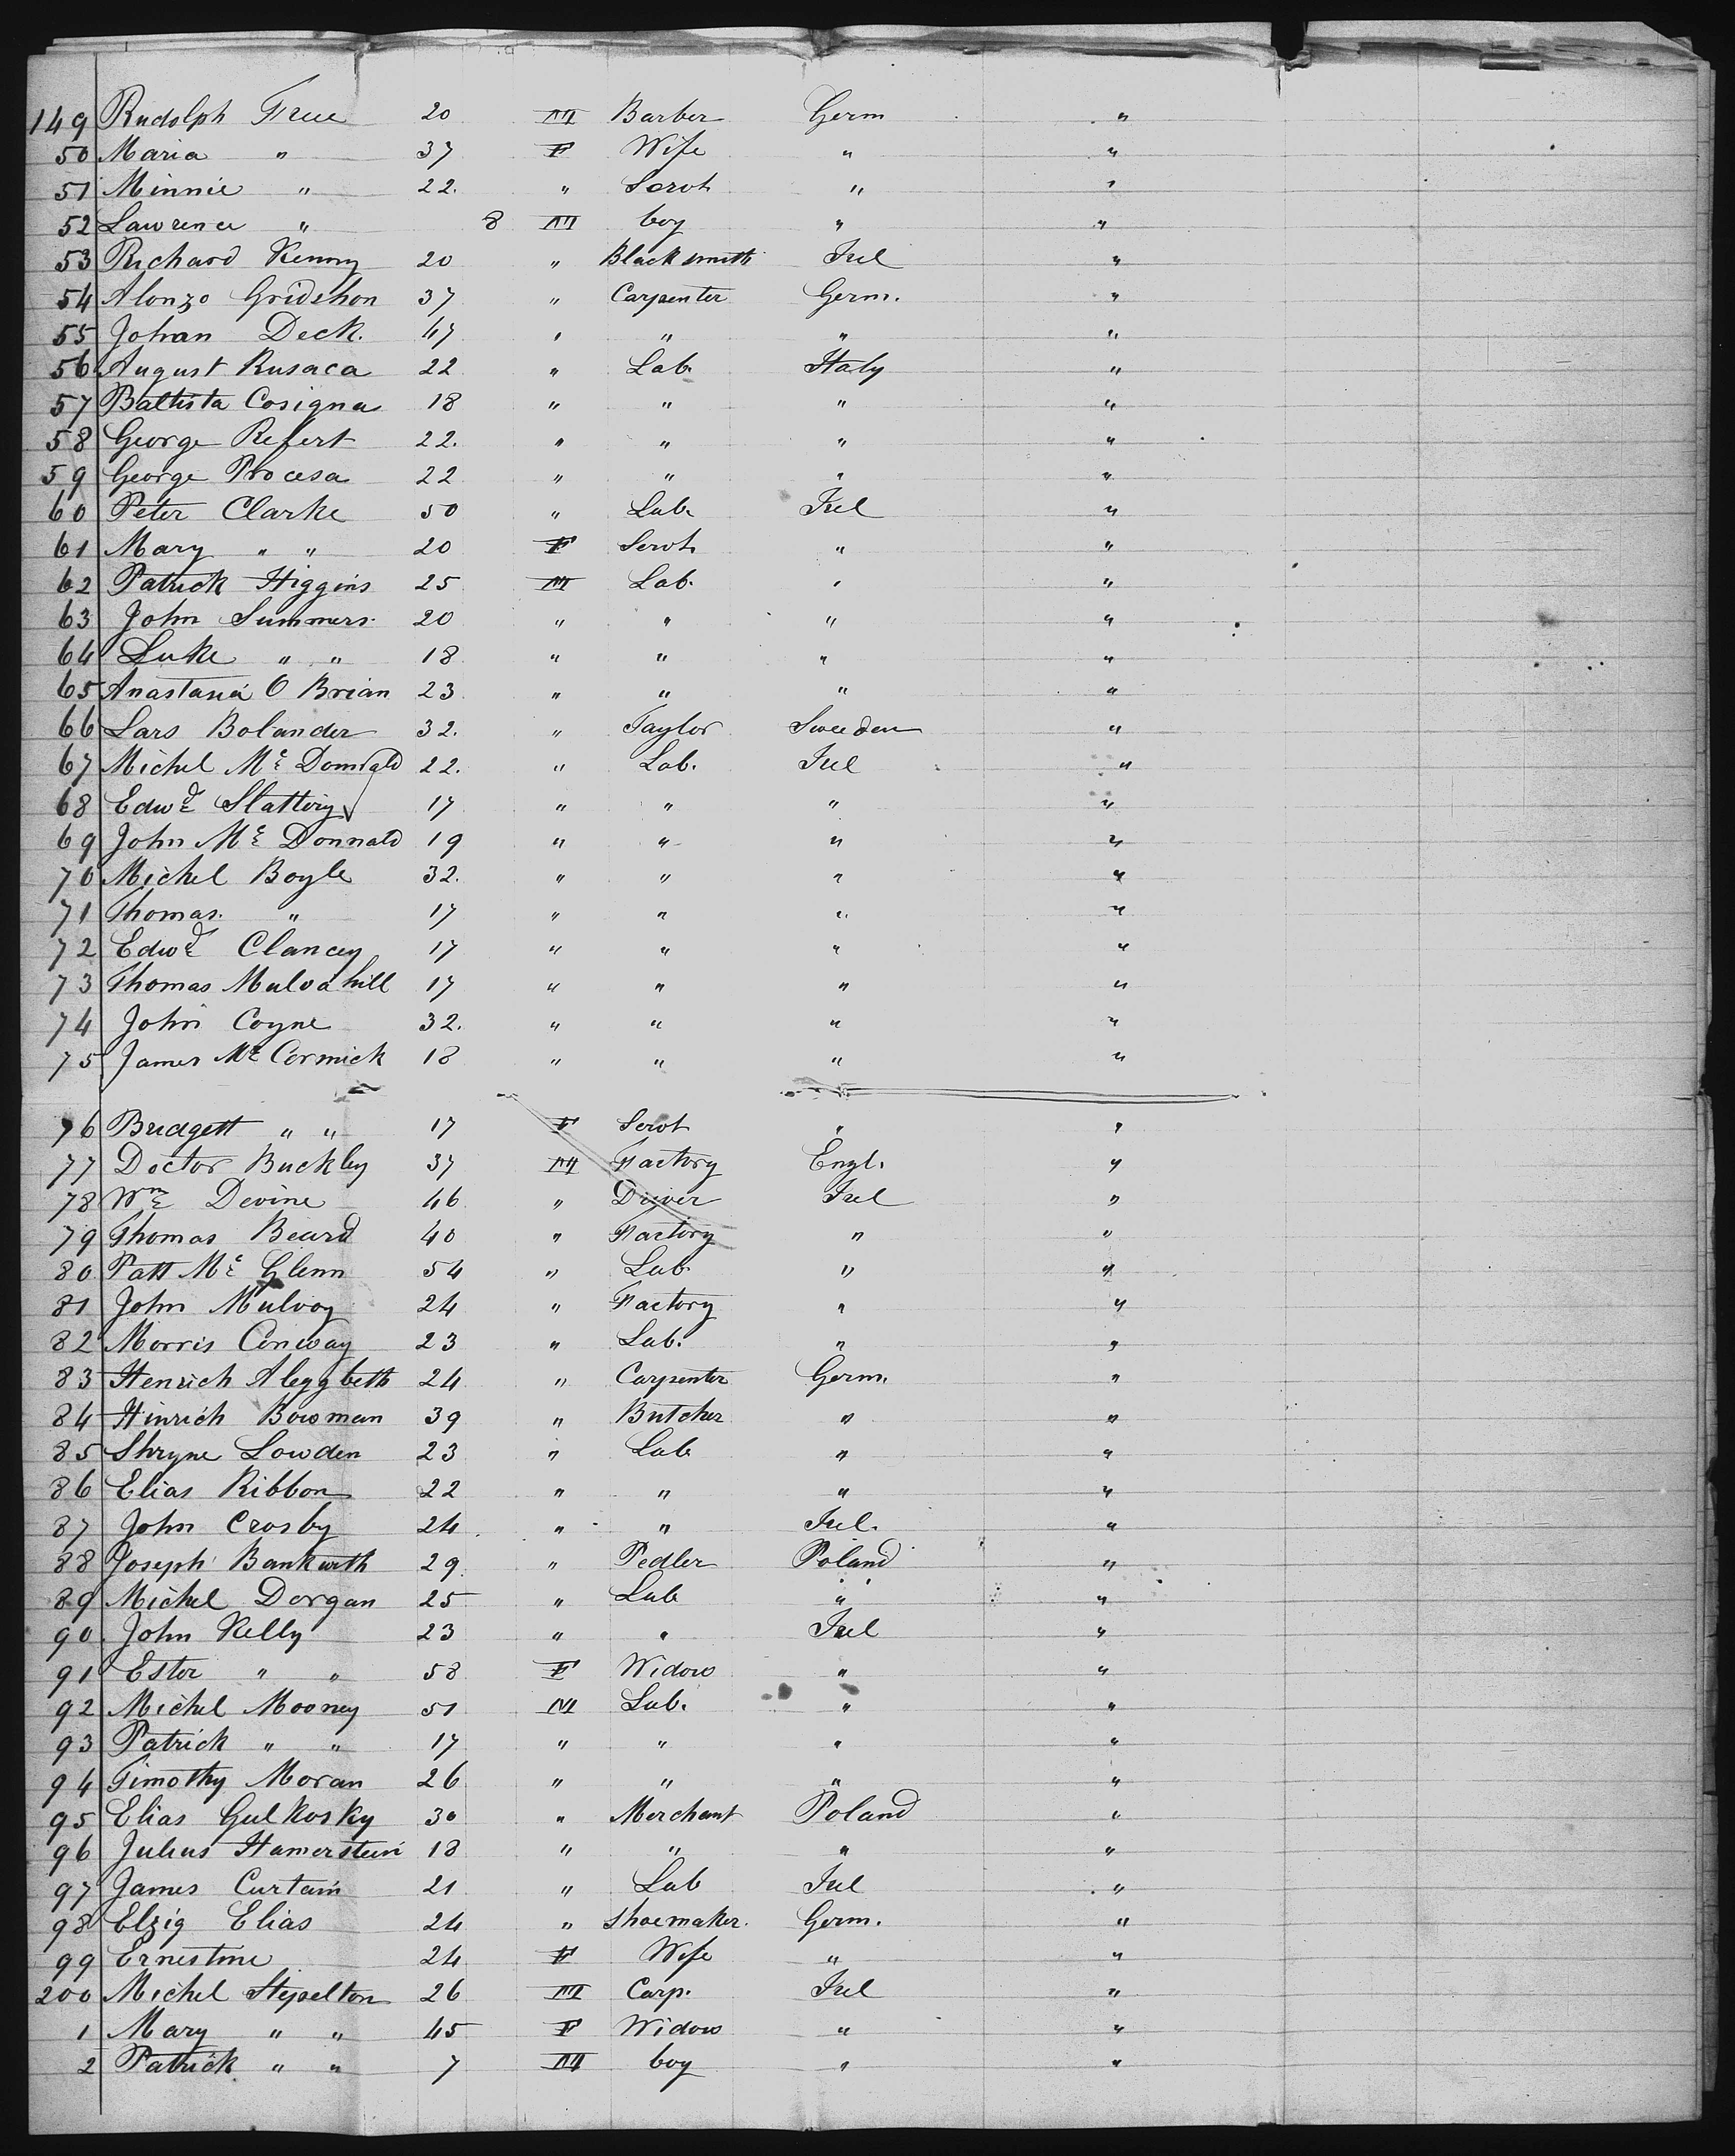 149 Rudolph Free 20 M Barber Germ "
50 Maria " 37 F Wife " "
51 Minnie " 22. " Servt " "
52 Lawrence " 8 M boy " "
53 Richard Kenny 20 " Blacksmith Irel "
54 Alonzo Gridshon 37 " Carpenter Germ. "
55 Johan Deck. 47 " " " "
56 August Rusaca 22 " Lab. Italy "
57 Battista Cosigna 18 " " " "
58 George Refert 22. " " " "
59 George Procesa 22 " " " "
60 Peter Clarke 50 " Lab. Irel "
61 Mary " " 20 F Servt " "
62 Patrick Higgins 25 M Lab. " "
63 John Summers 20 " " " "
64 Luke " " 18 " " " "
65 Anastasia O Brian 23 " " " "
66 Lars Bolander 32. " Taylor Sweeden "
67 Michel Mc Donnald 22. " Lab. Irel "
68 Edwd Slattery 17 " " " "
69 John Mc Donnald 19 " " " "
70 Michel Boyle 32. " " " "
71 Thomas. " 17 " " " "
72 Edwd Clancey 17 " " " "
73 Thomas Mulvahill 17 " " " "
74 John Coyne 32. " " " "
75 James Mc Cormick 18 " " " "
76 Bridgett " " 17 F Servt " "
77 Doctor Buckley 37 M Factory Engl. "
78 Wm Devine 46 " Driver Irel "
79 Thomas Beard 40 " Factory " "
80 Patt Mc Glenn 54 " Lab. " "
81 John Mulvoy 24 " Factory " "
82 Morris Conway 23 " Lab. " "
83 Henrich Aleggbeth 24 " Carpenter Germ. "
84 Hinrich Bowman 39 " Butcher " "
85 Shryne Lowden 23 " Lab " "
86 Elias Ribbon 22 " " " "
87 John Crosby 24 " " Irel. "
88 Joseph Bankwith 29. " Pedler Poland "
89 Michel Dorgan 25 " Lab " "
90 John Kelly 23 " " Irel "
91 Ester " " 58 F Widow " "
92 Michel Mooney 51 M Lab. " "
93 Patrick " " 17 " " " "
94 Timothy Moran 26 " " " "
95 Elias Gulkosky 30 " Merchant Poland "
96 Julius Hamerstein 18 " " " "
97 James Curtain 21 " Lab Irel "
98 Elzig Elias 24 " Shoemaker. Germ. "
99 Ernestine 24 F Wife " "
200 Michel Stepelton 26 M Carp. Irel "
1 Mary " " 45 F Widow " "
2 Patrick " " 7 M boy " "